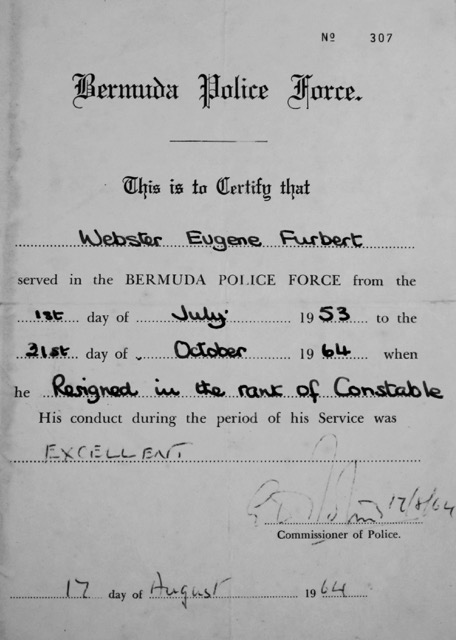 Nº 307
Bermuda Police Force.
This is to Certify that
Webster Eugene Furbert
served in the BERMUDA POLICE FORCE from the
1st day of July 1953 to the
31st day of October 1964 when
he Resigned in the rank of Constable
His conduct during the period of his Service was
EXCELLENT
17/8/64
Commissioner of Police.
17 day of August 1964